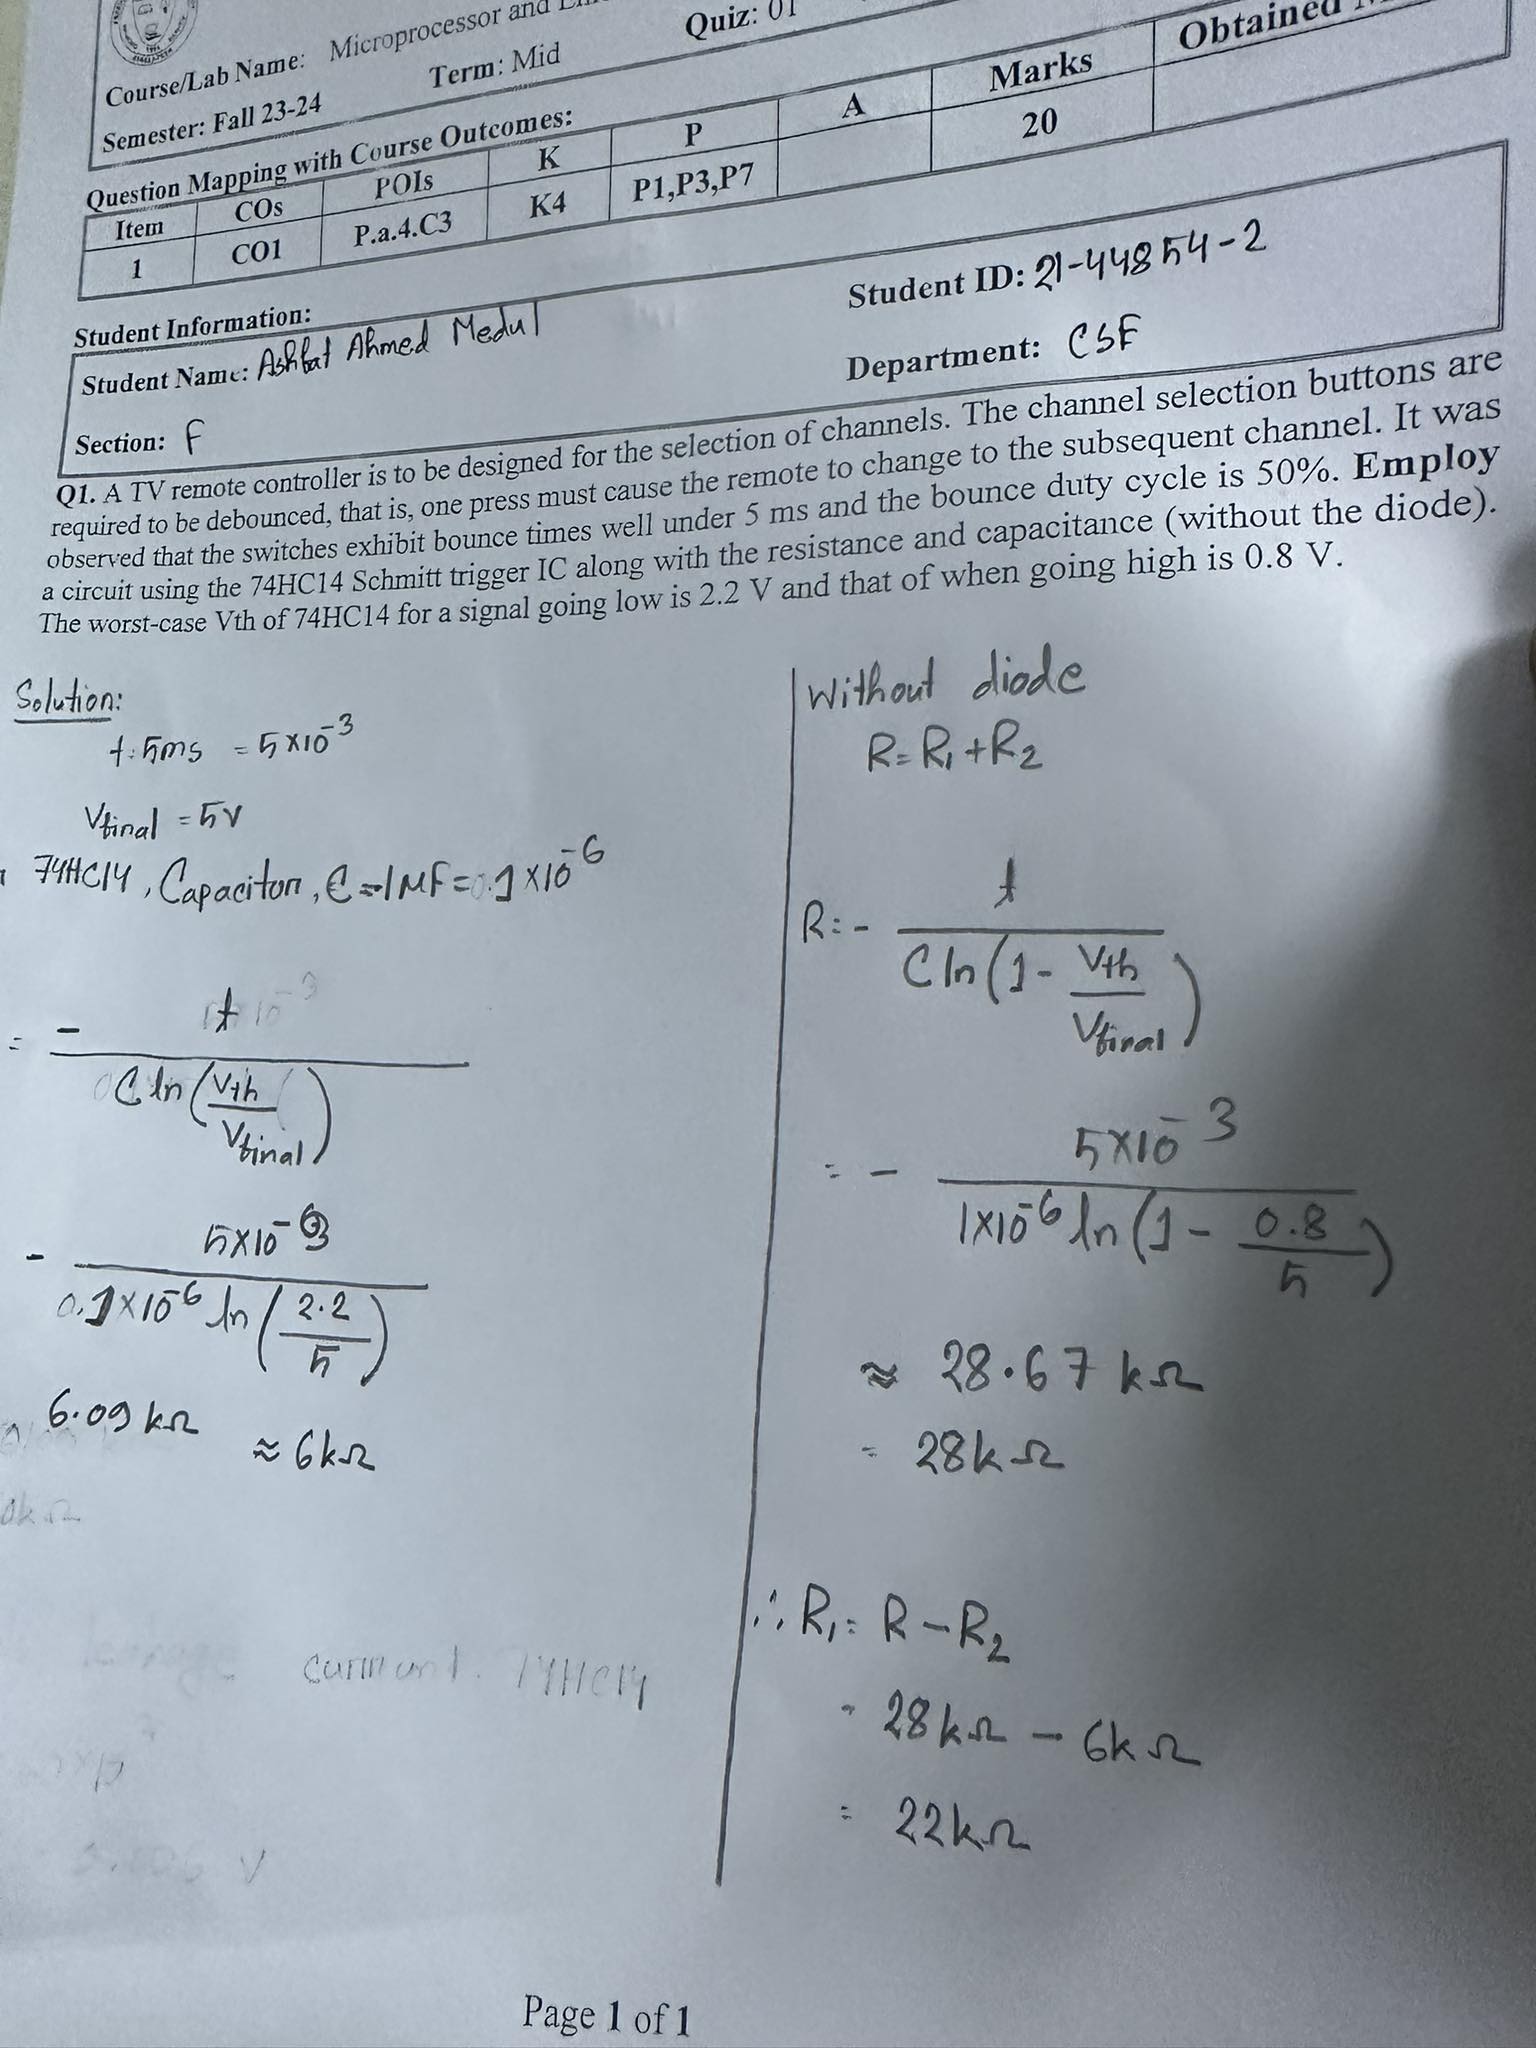 Course/Lab Name: Microprocessor and
Semester: Fall 23-24
Term: Mid
Quiz: 01
Question Mapping with Course Outcomes:
Item COs POIs K P A Marks Obtained
1 CO1 P.a.4.C3 K4 P1,P3,P7 20
Student Information:
Student Name: Ashfat Ahmed Medul
Student ID: 21-44854-2
Section: F
Department: CSE
Q1. A TV remote controller is to be designed for the selection of channels. The channel selection buttons are
required to be debounced, that is, one press must cause the remote to change to the subsequent channel. It was
observed that the switches exhibit bounce times well under 5 ms and the bounce duty cycle is 50%. Employ
a circuit using the 74HC14 Schmitt trigger IC along with the resistance and capacitance (without the diode).
The worst-case Vth of 74HC14 for a signal going low is 2.2 V and that of when going high is 0.8 V.
Solution:
t = 5ms = 5×10⁻³
Vfinal = 5V
74HC14, Capacitor, C = 1MF = 0.1×10⁻⁶
= - t
C ln (Vth
Vfinal)
- 5×10⁻³
0.1×10⁻⁶ ln (2.2
5)
6.09 kΩ ≈ 6kΩ
current. 74HC14
Without diode
R = R₁ + R₂
R = - t
C ln (1 - Vth
Vfinal)
= - 5×10⁻³
1×10⁻⁶ ln (1 - 0.8
5)
≈ 28.67 kΩ
= 28kΩ
∴ R₁ = R - R₂
= 28kΩ - 6kΩ
= 22kΩ
Page 1 of 1